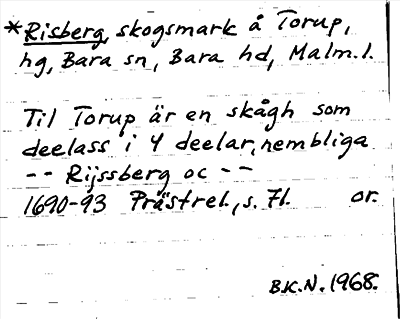 *Risberg, skogsmark å Torup,
hg, Bara sn, Bara hd, Malm. l.
Til Torup är en skågh som
deelass i 4 deelar, nembliga
-- Rijssberg oc --
1690-93 Prästrel., s. 71. or.
B.K.N. 1968.